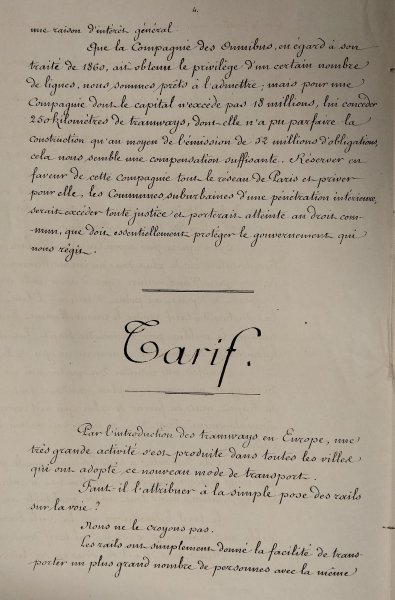 4.
une raison d'intérêt général
Que la Compagnie des Omnibus, en égard à son
traité de 1860, ait obtenu le privilège d'un certain nombre
de lignes, nous sommes prêts à l'admettre; mais pour une
Compagnie dont le capital n'excède pas 18 millions, lui concéder
250 kilomètres de tramways, dont elle n'a pu parfaire la
construction qu'au moyen de l'émission de 52 millions d'obligations,
cela nous semble une compensation suffisante. Réserver en
faveur de cette Compagnie tout le réseau de Paris et priver
pour elle, les Communes suburbaines d'une pénétration intérieure,
serait excéder toute justice et porterait atteinte au droit com-
-mun, que doit essentiellement protéger le gouvernement qui
nous régit.
Tarif.
Par l'introduction des tramways en Europe, une
très grande activité s'est produite dans toutes les villes
qui ont adopté ce nouveau mode de transport.
Faut il l'attribuer à la simple pose des rails
sur la voie?
Nous ne le croyons pas.
Les rails ont simplement donné la facilité de trans-
porter un plus grand nombre de personnes avec la même